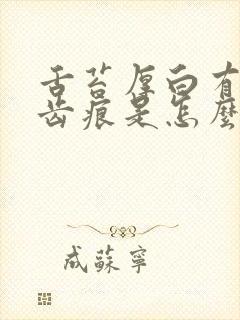 舌苔厚白有
齿痕是怎麼
成蘇寧